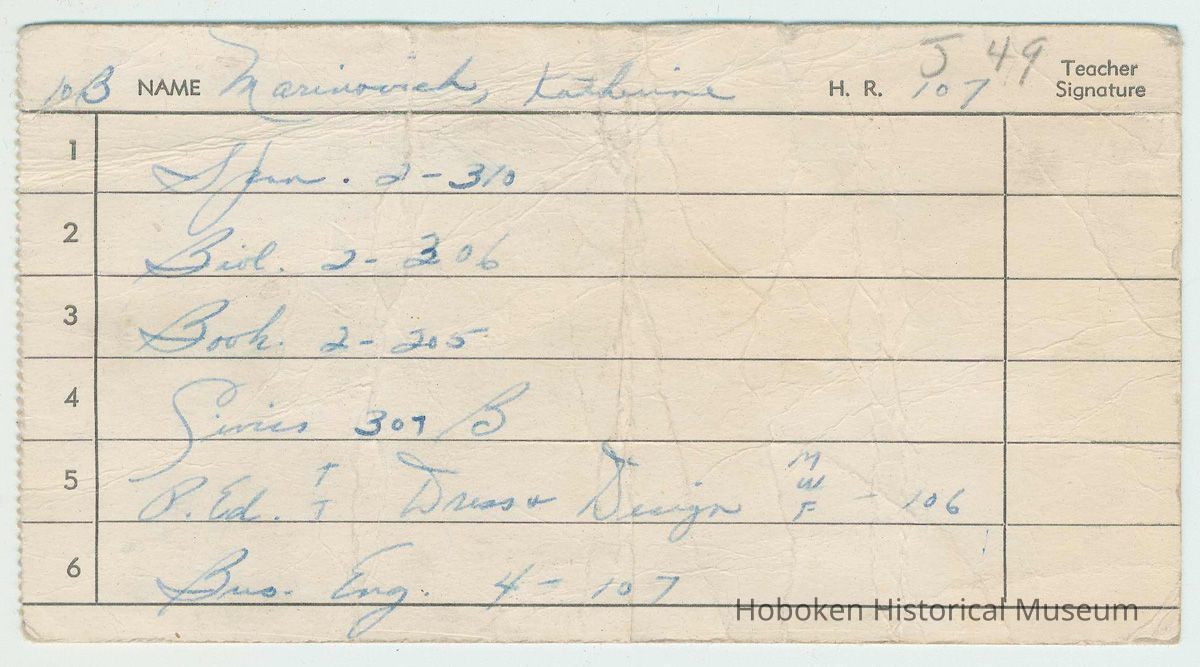 J 49
10B NAME Marinovich, Katherine H. R. 107 Teacher Signature
1 Span. 2 - 310
2 Biol. 2 - 306
3 Book. 2 - 205
4 Civics 307 B
5 P. Ed. T T Dress + Design M W F - 106
6 Bus. Eng. 4 - 107
Hoboken Historical Museum